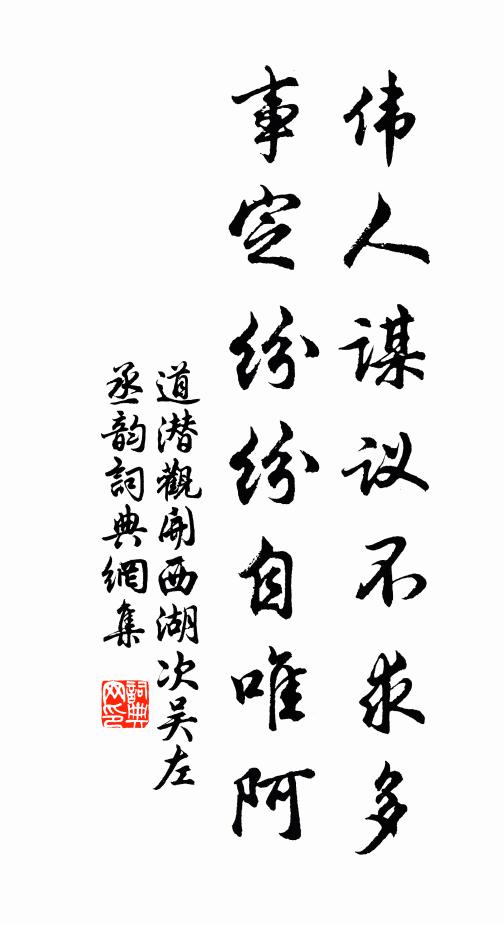 伟人谋议不求多
事定纷纷自唯阿
道潜觀開西湖次吴左
丞韵詞典網集
詞典
网印